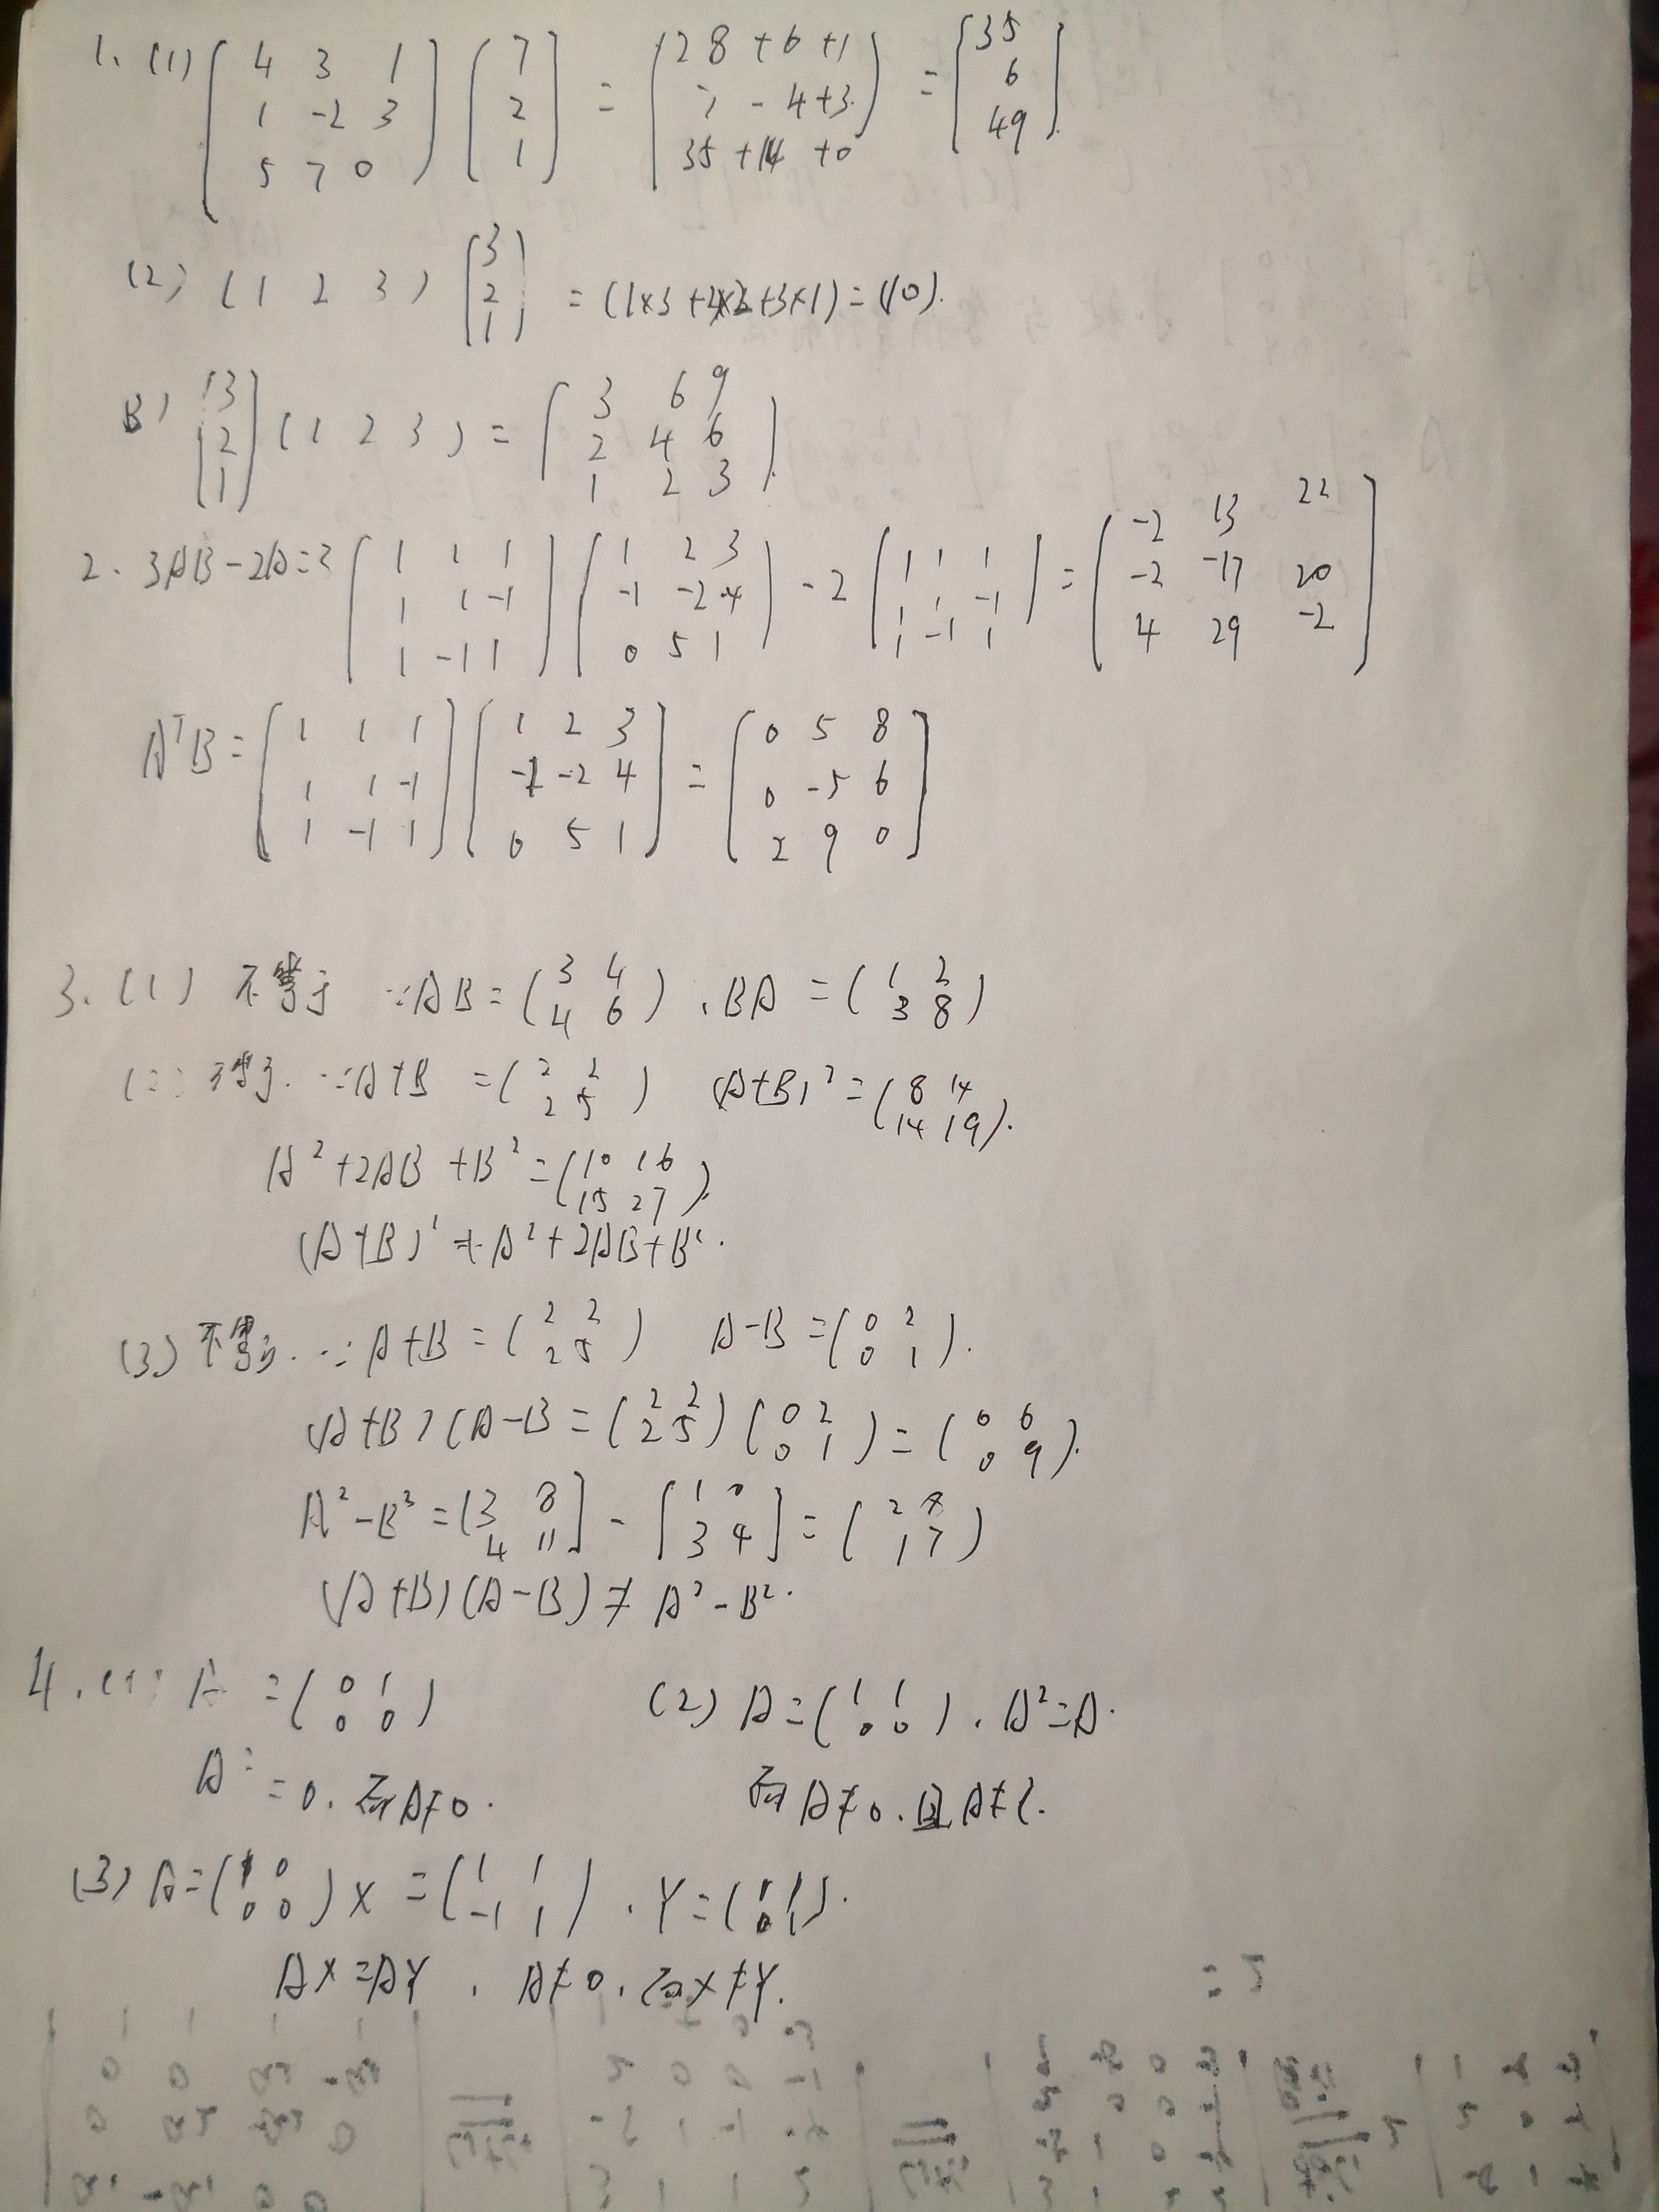 1. (1) (4 3 1; 1 -2 3; 5 7 0) (7; 2; 1) = (28+6+1; 7-4+3; 35+14+0) = (35; 6; 49)
(2) (1 2 3) (3; 2; 1) = (1×3+2×2+3×1) = (10).
(3) (3; 2; 1) (1 2 3) = (3 6 9; 2 4 6; 1 2 3)
2. 3AB-2A=3 (1 1 1; 1 1 -1; 1 -1 1) (1 2 3; -1 -2 4; 0 5 1) - 2 (1 1 1; 1 1 -1; 1 -1 1) = (-2 13 22; -2 -17 20; 4 29 -2)
AᵀB = (1 1 1; 1 1 -1; 1 -1 1) (1 2 3; -1 -2 4; 0 5 1) = (0 5 8; 0 -5 6; 2 9 0)
3. (1) 不等于 ∵AB = (3 4; 4 6), BA = (1 2; 3 8)
(2) 不等于. ∵A+B = (2 2; 2 5) (A+B)² = (8 14; 14 19).
A²+2AB+B² = (10 16; 15 27).
(A+B)² ≠ A²+2AB+B².
(3) 不等于. ∵A+B = (2 2; 2 5) A-B = (0 2; 0 1).
(A+B)(A-B = (2 2; 2 5) (0 2; 0 1) = (0 6; 0 9).
A²-B² = (3 8; 4 11] - [1 0; 3 4] = (2 8; 1 7)
(A+B)(A-B) ≠ A²-B².
4. (1) A = (0 1; 0 0) (2) A = (1 1; 0 0), A²=A.
A² = 0, 而A≠0. 而A≠0, 且A≠
(3) A = (1 0; 0 0) X = (1 1; -1 1), Y = (1 1; 0 1).
AX=AY, A≠0, 而X≠Y.